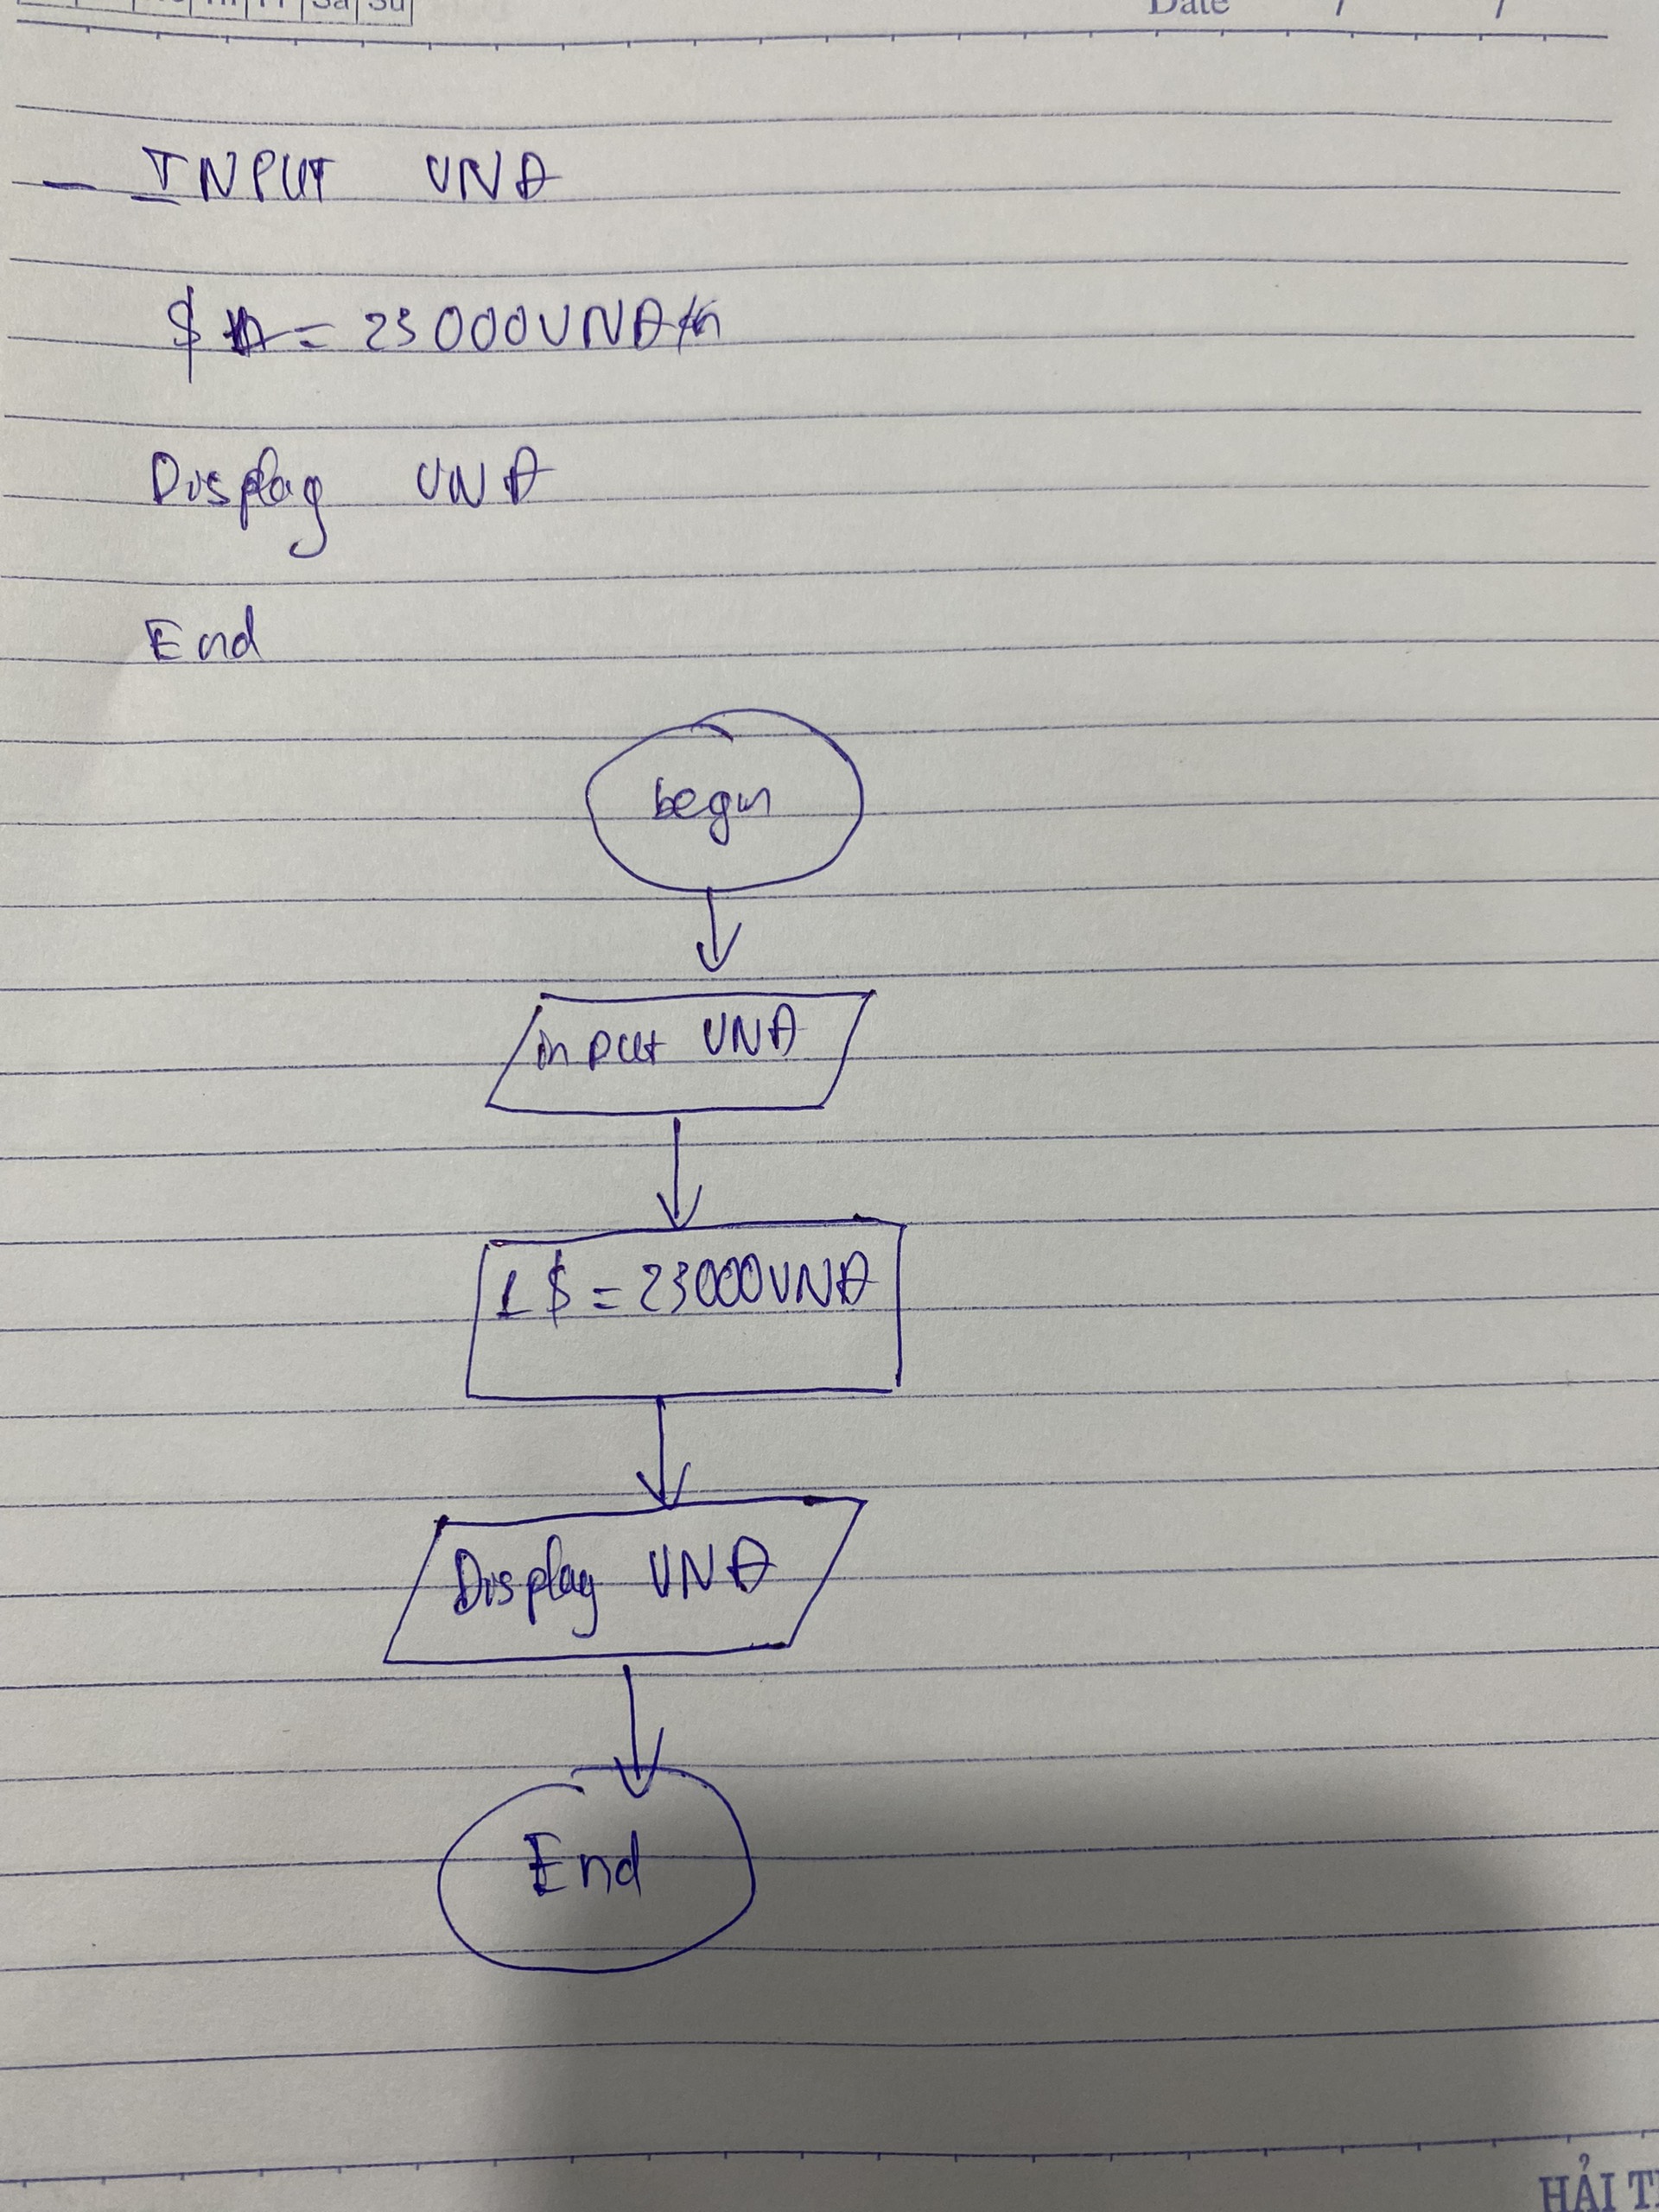 Sa Su
Date / /
- INPUT VNĐ
$ = 23000VNĐ
Display VNĐ
End
begin
input VNĐ
1 $ = 23000VNĐ
Display VNĐ
End
HẢI